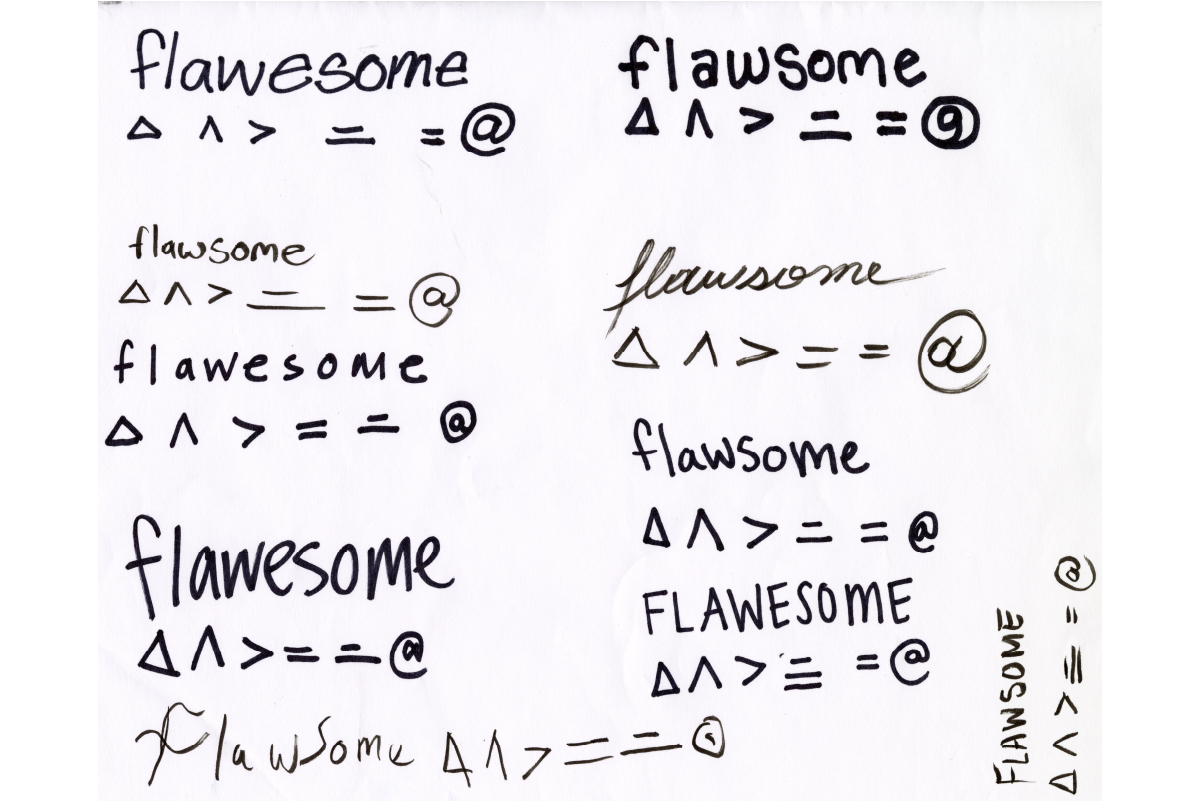 flawesome
Δ Λ > = = @
flawsome
Δ Λ > = = @
flawsome
Δ Λ > = = @
flawesome
Δ Λ > = = @
flawesome
Δ Λ > = = @
flawsome Δ Λ > = = @
flawsome
Δ Λ > = = @
flawsome
Δ Λ > = = @
FLAWESOME
Δ Λ > ≡ = @
FLAWSOME
Δ Λ > ≡ = @